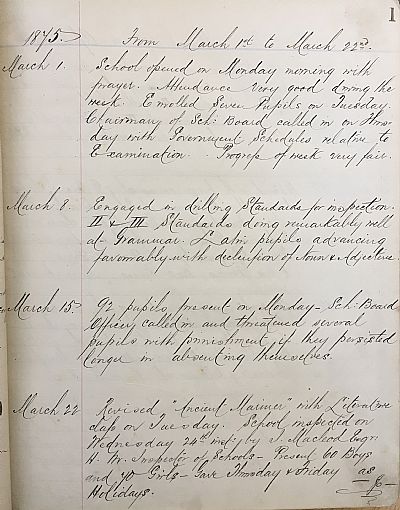 1
1875. From March 1st to March 22nd.
March 1. School opened on Monday morning with
prayer. Attendance very good during the
week. Enrolled seven Pupils on Tuesday.
Chairman of Sch: Board called in on Thurs-
day with Government Schedules relative to
Examination. Progress of week very fair.
March 8. Engaged in drilling Standards for inspection.
II & III Standards doing remarkably well
at Grammar. Latin pupils advancing
favorably with declension of Noun & Adjective.
March 15. 92 pupils present on Monday - Sch: Board
Officer called in and threatened several
pupils with punishment if they persisted
longer in absenting themselves.
March 22. Revised "Ancient Mariner" with Literature
class on Tuesday. School inspected on
Wednesday 24th inst; by J. Macleod Esqr:
H. M. Inspector of Schools - Present 60 Boys
and 70 Girls - Gave Thursday & Friday as
Holidays.